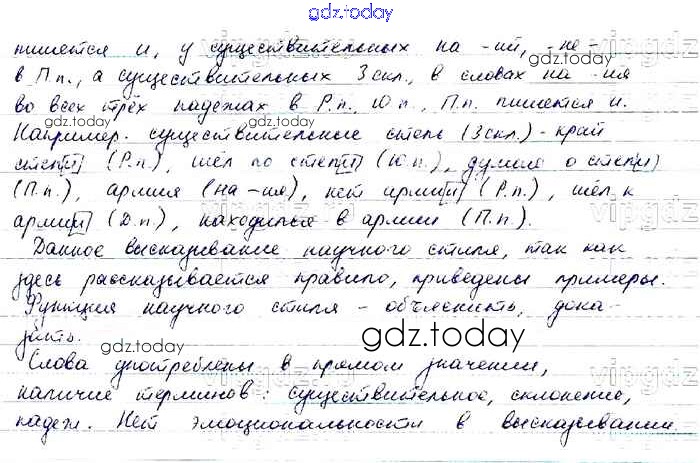 gdz.today
пишется и, у существительных на -ий, -не-
в П.п., а существительных 3 скл., в словах на -ия
во всех трёх падежах в Р.п., Ю.п., П.п. пишется и.
Например: существительное степь (3 скл.) - край
степ[и] (Р.п.), шёл по степ[и] (Ю.п.), думал о степ[и]
(П.п.), армия (на -ия), нет арми[и] (Р.п.), шёл к
арми[и] (Д.п.), находился в армии (П.п.).
Данное высказывание научного стиля, так как
здесь рассказывается правило, приведены примеры.
Функция научного стиля - объяснить, дока-
зать.
gdz.today
gdz.today
Слова употреблены в прямом значении,
наличие терминов: существительное, склонение,
падеж. Нет эмоциональности в высказывании.
vipgdz